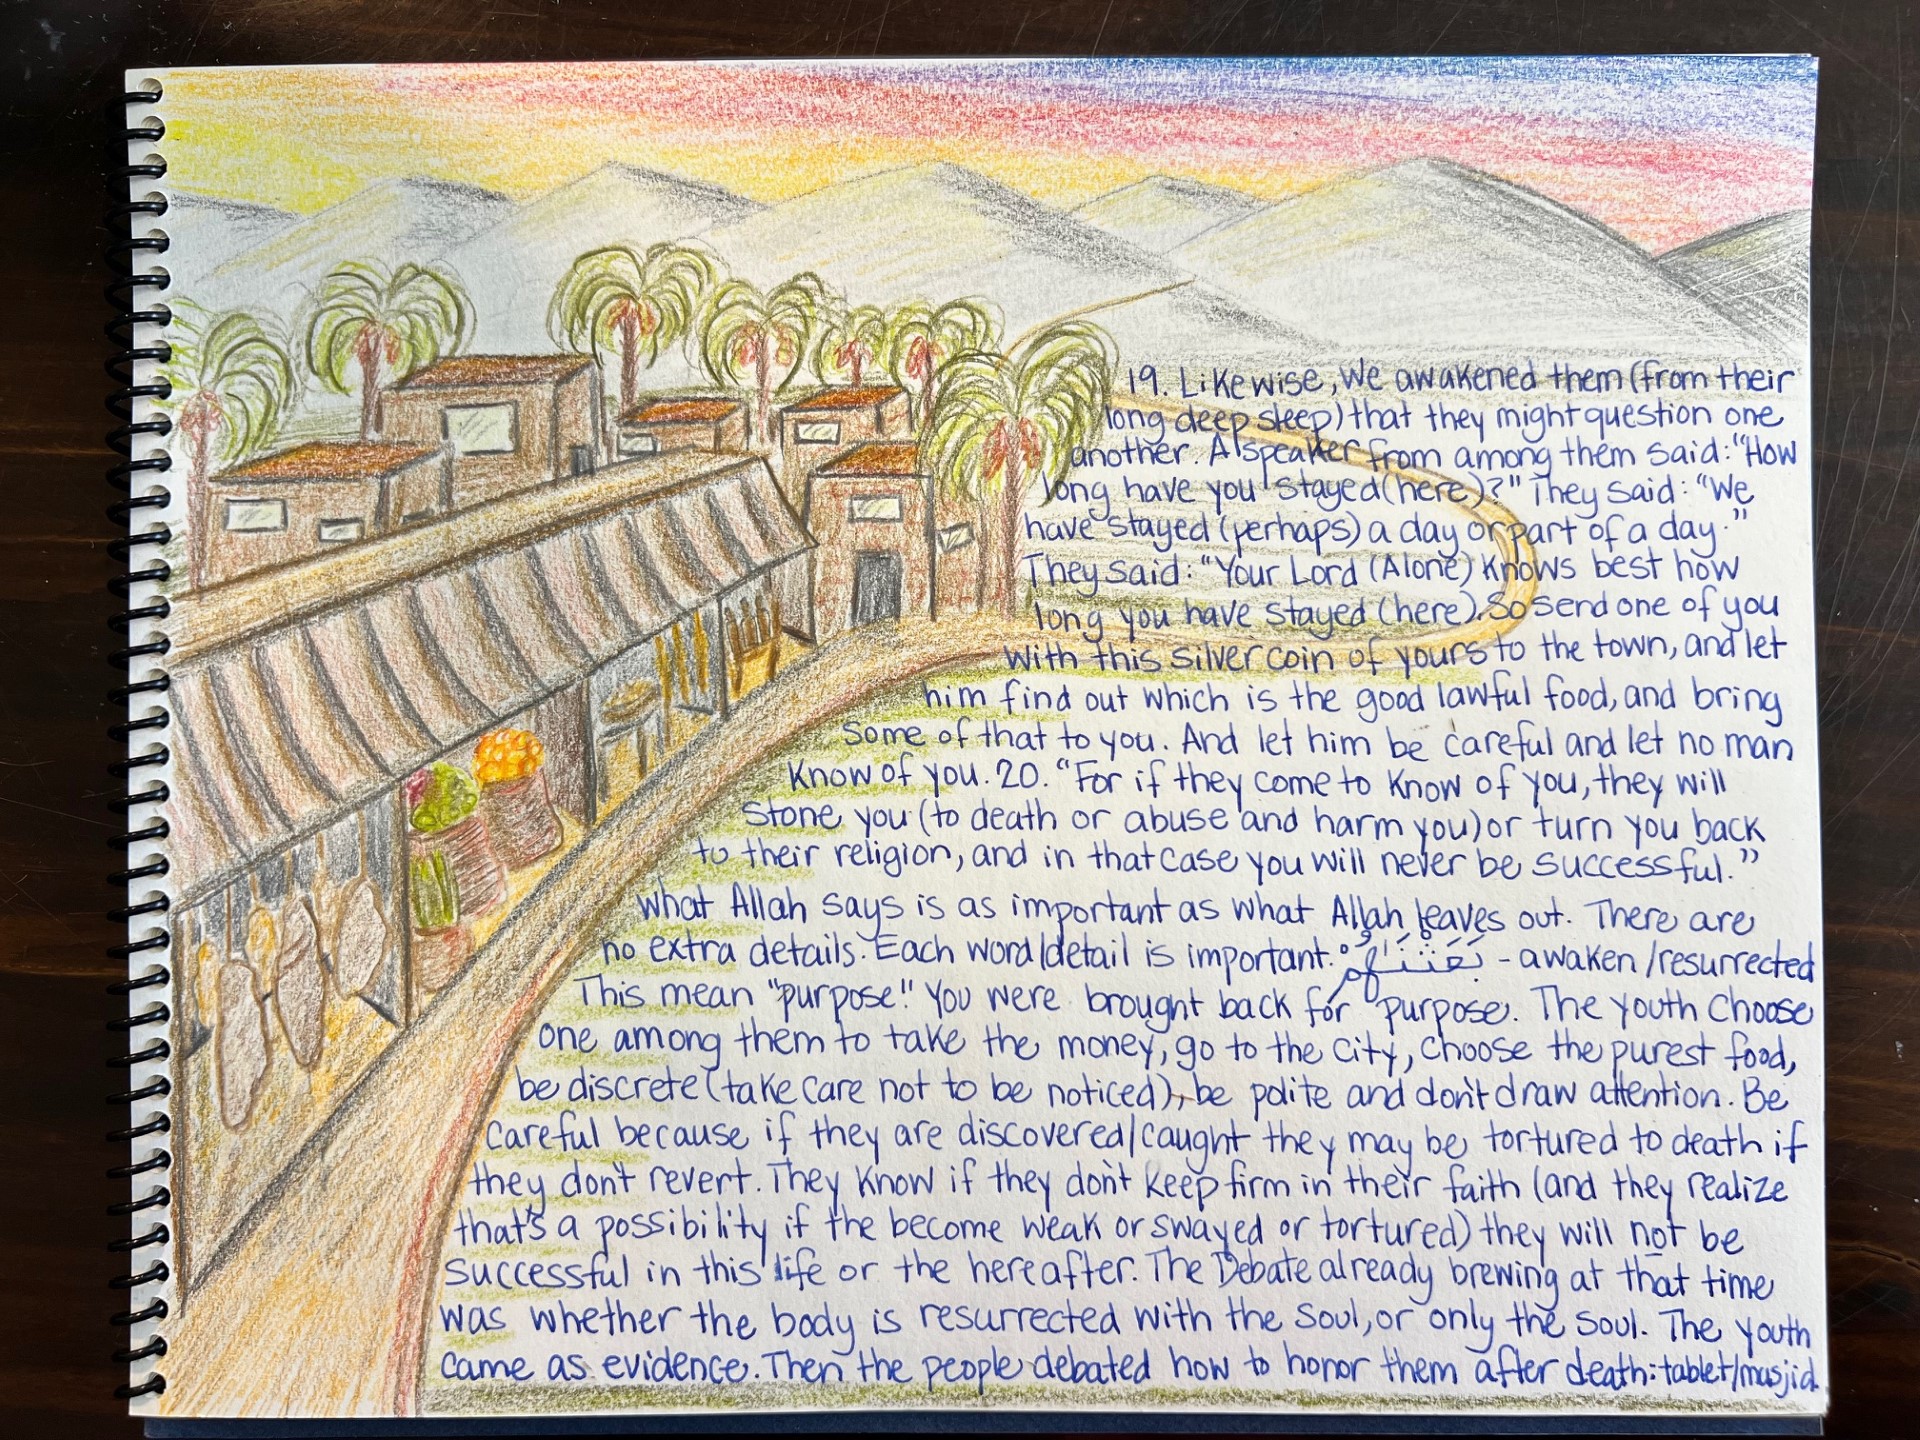 19. Likewise, We awakened them (from their
long deep sleep) that they might question one
another. A speaker from among them said: "How
long have you stayed (here)?" They said: "We
have stayed (perhaps) a day or part of a day."
They said: "Your Lord (Alone) knows best how
long you have stayed (here). So send one of you
with this silver coin of yours to the town, and let
him find out which is the good lawful food, and bring
some of that to you. And let him be careful and let no man
know of you. 20. "For if they come to know of you, they will
stone you (to death or abuse and harm you) or turn you back
to their religion, and in that case you will never be successful."
What Allah says is as important as what Allah leaves out. There are
no extra details. Each word/detail is important. بَعَثْنَـٰهُمْ - awaken/resurrected
This mean "purpose". You were brought back for purpose. The youth choose
one among them to take the money, go to the city, choose the purest food,
be discrete (take care not to be noticed), be polite and don't draw attention. Be
careful because if they are discovered/caught they may be tortured to death if
they don't revert. They know if they don't keep firm in their faith (and they realize
that's a possibility if the become weak or swayed or tortured) they will not be
successful in this life or the hereafter. The Debate already brewing at that time
was whether the body is resurrected with the soul, or only the soul. The youth
came as evidence. Then the people debated how to honor them after death: tablet/masjid